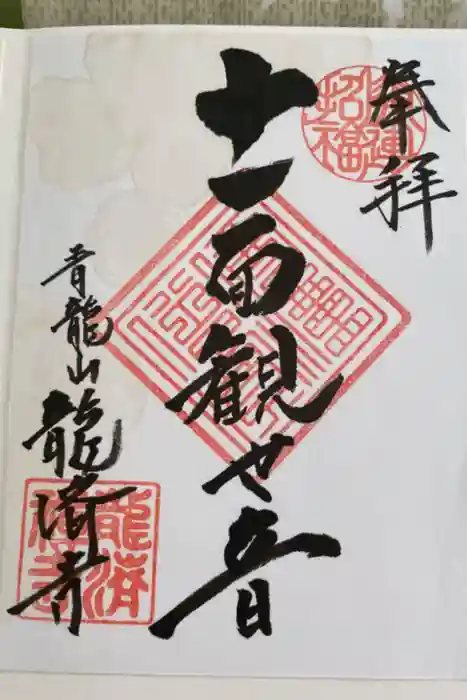 奉拝
十一面観世音
青龍山龍済寺
招福
龍済
禅寺